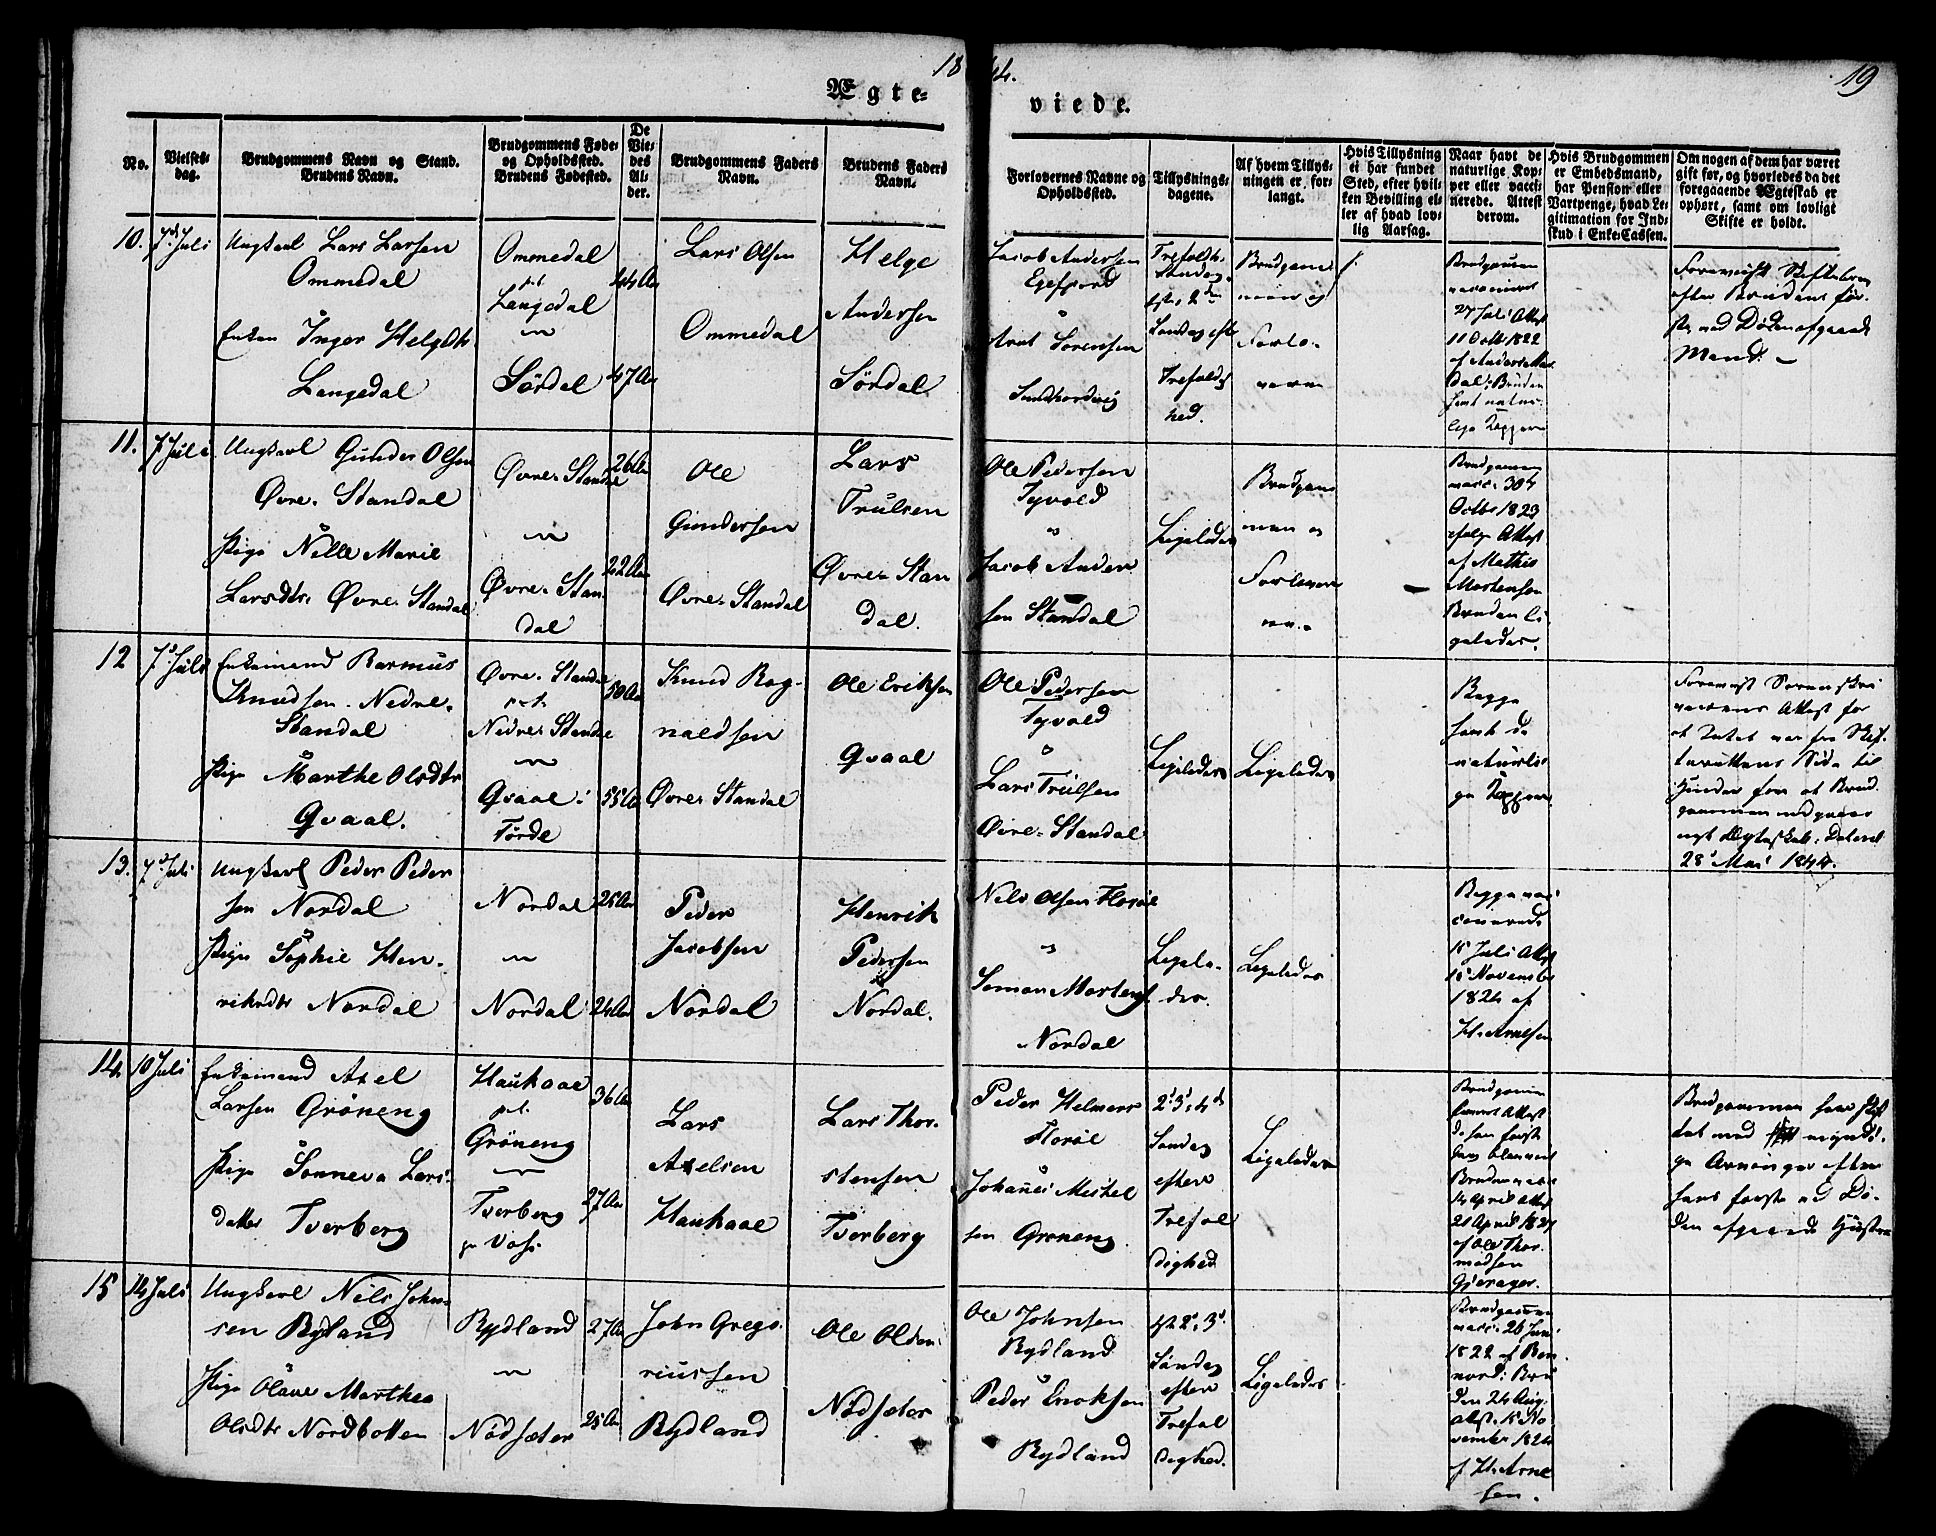 1844.
19
Ægte-
viede.
No.
Vielses-
dag.
Brudgommens Navn og Stand.
Brudens Navn.
Brudgommens Føde-
og Opholdssted.
Brudens Fødested.
De
Vie-
des
Al-
der.
Brudgommens Faders
Navn.
Brudens Faders
Navn.
Forlovernes Navne og
Opholdssted.
Tillysnings-
dagene.
Af hvem Tillys-
ningen er for-
langt.
Hvis Tillysning
ei har fundet
Sted, efter hvil-
ken Bevilling el-
ler af hvad lov-
lig Aarsag.
Naar havt de
naturlige Kop-
per eller vacci-
nerede. Attest
derom.
Hvis Brudgommen
er Embedsmand,
har Pension eller
Vartpenge, hvad Le-
gitimation for Ind-
skud i Enke-Cassen.
Om nogen af dem har været
gift før, og hvorledes da det
foregaaende Ægteskab er
ophørt, samt om lovligt
Skifte er holdt.
10.
7d Juli
Ungkarl Lars Larsen
Ommedal
Enken Inger Helgdtr
Langedal
Ommedal
pt.
Langedal
Sördal
44 Aar
47 Aar
Lars Olsen
Ommedal
Helge
Andersen
Sördal
Jacob Andersen
Egefjord
Arnt Sörensen
Trefoldh.
Søndag
2den
Søndag eft.
Trefoldig
hed.
Brudgom
men og
Forlo-
verne
Brudgommen
vaccineret
27 Juli Attest
11 Octb: 1822
dal: Bruden
havt natur-
lige Kopper
Forevist Skiftebrev
efter Brudens før-
ste ved Døden afgaaede
Mand. –
11.
7 Juli
Ungkarl Gunder Olsen
Øvre-Standal
Pige Nille Marie
Larsdtr: Øvre-Standal
Øvre-Standal
Øvre-Stan
dal
26 Aar
22 Aar
Ole
Gundersen
Øvre-Standal
Lars
Trulsen
Øvre-Stan
dal.
Ole Pedersen
Tyvold
Jacob Ander
sen Standal
Ligeledes
Brudgom
men og
Forlover
ne.
Brudgommen
vacc: 30te
Octbr 1823
ifølge Attest
af Mathis
Mortensen
Bruden li
geledes.
12
7d Juli
Enkemand Rasmus
Knudsen. Nedre-
Standal
Pige Marthe Olsdtr
Qvaal.
Øvre-Standal
pt.
Nedre-Standal
Qvaal i
Førde
50 Aar
55 Aar
Knud Rog-
naldsen
Øvre-Standal
Ole Eriksen
Qvaal
Ole Pedersen
Tyvold
Lars Trulsen
Øvre-Standal
Ligeledes
Ligeledes
Begge
havt de
naturlig
ge Kopper
Forevist Sorenskri
verens Attest for
at Intet var fra Skif-
terettens Side til
Hinder for at Brud-
gommen indgaaer
nyt Ægteskab. Dateret
28d Mai 1844.
13.
7d Juli
Ungkarl Peder Peder
sen Nordal
Pige Sophie Hen-
rikdtr Nordal
Nordal
Nordal
25 Aar
24 Aar
Peder
Jacobsen
Nordal
Henrik
Pedersen
Nordal.
Nils Olsen Florøe
Simon Mortens.
Nordal
Ligele-
des.
Ligeledes
Begge vac-
cinerede
15 Juli Attest
15 Novembr
1824 af
H. Arnesen
14.
10 Juli
Enkemand Axel
Larsen Gröneng
Pige Sönneva Lars-
datter Tverberg
Haukaae
pt.
Gröneng
Tverberg
pa Voss.
36 Aar
27 Aar
Lars
Axelsen
Haukaae
Lars Thor-
stensen
Tverberg
Peder Helmers
Florøe
Johanes Mikel
sen Gröneng
2d 3d 4de
Søndag
efter
Trefol
dighed
Ligeledes
Brudgommen
Bruden vacc
14 April Attest
21 April 1827
af Ole Thor-
modsen
Gjerager.
Brudgommen har skif
tet med myndi-
ge Arvinger efter
hans første ved Dø-
den afgaaede Hustru
15
14 Juli
Ungkarl Nils John-
sen Rydland
Pige Olave Marthea
Olsdtr Nordbotten
Rydland
Nödsæter
27 Aar
25 Aar
John Grego-
riussen
Rydland
Ole Olsen
Nödsæter
Ole Johnsen
Rydland
Peder Eriksen
Rydland
2d, 3d
Søndag
efter
Trefol
dighed.
Ligeledes
Brudgommen
vacc: 26 Juni
1822
Bru
den 24 Aug.
Attst. 15 No
vember 1824
af H. Arne
sen.